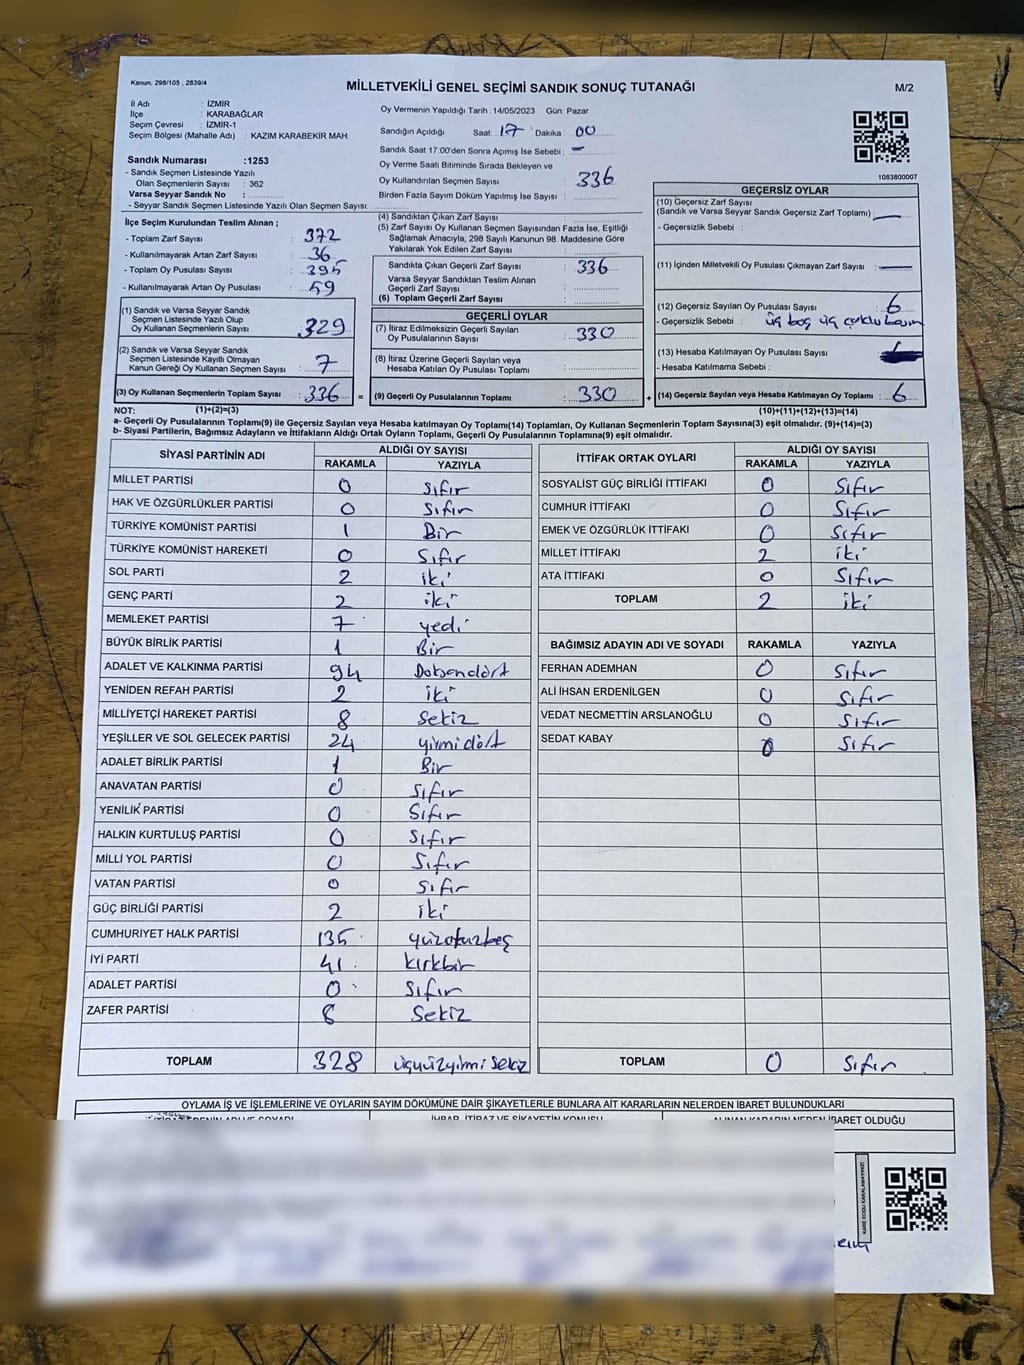 Kanun, 298/105 , 2839/4
MİLLETVEKİLİ GENEL SEÇİMİ SANDIK SONUÇ TUTANAĞI
M/2
İl Adı : İZMİR
İlçe : KARABAĞLAR
Seçim Çevresi : İZMİR-1
Seçim Bölgesi (Mahalle Adı) : KAZIM KARABEKİR MAH.
Sandık Numarası :1253
- Sandık Seçmen Listesinde Yazılı
Olan Seçmenlerin Sayısı : 362
Varsa Seyyar Sandık No :
- Seyyar Sandık Seçmen Listesinde Yazılı Olan Seçmen Sayısı:
Oy Vermenin Yapıldığı Tarih :14/05/2023 Gün: Pazar
Sandığın Açıldığı Saat: 17 Dakika : 00
Sandık Saat 17:00'den Sonra Açılmış İse Sebebi : –
Oy Verme Saati Bitiminde Sırada Bekleyen ve
Oy Kullandırılan Seçmen Sayısı : 336
Birden Fazla Sayım Döküm Yapılmış İse Sayısı :
1083800007
İlçe Seçim Kurulundan Teslim Alınan ;
- Toplam Zarf Sayısı : 372
- Kullanılmayarak Artan Zarf Sayısı : 36
- Toplam Oy Pusulası Sayısı : 395
- Kullanılmayarak Artan Oy Pusulası : 59
(1) Sandık ve Varsa Seyyar Sandık
Seçmen Listesinde Yazılı Olup
Oy Kullanan Seçmenlerin Sayısı : 329
(2) Sandık ve Varsa Seyyar Sandık
Seçmen Listesinde Kayıtlı Olmayan
Kanun Gereği Oy Kullanan Seçmen Sayısı : 7
(3) Oy Kullanan Seçmenlerin Toplam Sayısı : 336 =
(4) Sandıktan Çıkan Zarf Sayısı :
(5) Zarf Sayısı Oy Kullanan Seçmen Sayısından Fazla İse, Eşitliği
Sağlamak Amacıyla, 298 Sayılı Kanunun 98. Maddesine Göre
Yakılarak Yok Edilen Zarf Sayısı :
Sandıkta Çıkan Geçerli Zarf Sayısı : 336
Varsa Seyyar Sandıktan Teslim Alınan
Geçerli Zarf Sayısı :
(6) Toplam Geçerli Zarf Sayısı :
GEÇERLİ OYLAR
(7) İtiraz Edilmeksizin Geçerli Sayılan
Oy Pusulasının Sayısı : 330
(8) İtiraz Üzerine Geçerli Sayılan veya
Hesaba Katılan Oy Pusulası Toplamı :
(9) Geçerli Oy Pusulalarının Toplamı : 330 +
GEÇERSİZ OYLAR
(10) Geçersiz Zarf Sayısı
(Sandık ve Varsa Seyyar Sandık Geçersiz Zarf Toplamı) : —
- Geçersizlik Sebebi :
(11) İçinden Milletvekili Oy Pusulası Çıkmayan Zarf Sayısı : —
(12) Geçersiz Sayılan Oy Pusulası Sayısı : 6
- Geçersizlik Sebebi : üç boş üç
(13) Hesaba Katılmayan Oy Pusulası Sayısı :
- Hesaba Katılmama Sebebi :
(14) Geçersiz Sayılan veya Hesaba Katılmayan Oy Toplamı : 6
NOT: (1)+(2)=(3) (10)+(11)+(12)+(13)=(14)
a- Geçerli Oy Pusulalarının Toplamı(9) ile Geçersiz Sayılan veya Hesaba katılmayan Oy Toplamı(14) Toplamları, Oy Kullanan Seçmenlerin Toplam Sayısına(3) eşit olmalıdır. (9)+(14)=(3)
b- Siyasi Partilerin, Bağımsız Adayların ve İttifakların Aldığı Ortak Oyların Toplamı, Geçerli Oy Pusulalarının Toplamına(9) eşit olmalıdır.
SİYASİ PARTİNİN ADI ALDIĞI OY SAYISI
RAKAMLA YAZIYLA
MİLLET PARTİSİ 0 Sıfır
HAK VE ÖZGÜRLÜKLER PARTİSİ 0 Sıfır
TÜRKİYE KOMÜNİST PARTİSİ 1 Bir
TÜRKİYE KOMÜNİST HAREKETİ 0 Sıfır
SOL PARTİ 2 iki
GENÇ PARTİ 2 iki
MEMLEKET PARTİSİ 7 yedi
BÜYÜK BİRLİK PARTİSİ 1 Bir
ADALET VE KALKINMA PARTİSİ 94 Doksandört
YENİDEN REFAH PARTİSİ 2 iki
MİLLİYETÇİ HAREKET PARTİSİ 8 Sekiz
YEŞİLLER VE SOL GELECEK PARTİSİ 24 yirmidört
ADALET BİRLİK PARTİSİ 1 Bir
ANAVATAN PARTİSİ 0 Sıfır
YENİLİK PARTİSİ 0 Sıfır
HALKIN KURTULUŞ PARTİSİ 0 Sıfır
MİLLİ YOL PARTİSİ 0 Sıfır
VATAN PARTİSİ 0 Sıfır
GÜÇ BİRLİĞİ PARTİSİ 2 iki
CUMHURİYET HALK PARTİSİ 135 yüzotuzbeş
İYİ PARTİ 41 kırkbir
ADALET PARTİSİ 0 Sıfır
ZAFER PARTİSİ 8 Sekiz
TOPLAM 328 üçyüzyirmi sekiz
İTTİFAK ORTAK OYLARI ALDIĞI OY SAYISI
RAKAMLA YAZIYLA
SOSYALİST GÜÇ BİRLİĞİ İTTİFAKI 0 Sıfır
CUMHUR İTTİFAKI 0 Sıfır
EMEK VE ÖZGÜRLÜK İTTİFAKI 0 Sıfır
MİLLET İTTİFAKI 2 iki
ATA İTTİFAKI 0 Sıfır
TOPLAM 2 iki
BAĞIMSIZ ADAYIN ADI VE SOYADI RAKAMLA YAZIYLA
FERHAN ADEMHAN 0 Sıfır
ALİ İHSAN ERDENİLGEN 0 Sıfır
VEDAT NECMETTİN ARSLANOĞLU 0 Sıfır
SEDAT KABAY 0 Sıfır
TOPLAM 0 Sıfır
OYLAMA İŞ VE İŞLEMLERİNE VE OYLARIN SAYIM DÖKÜMÜNE DAİR ŞİKAYETLERLE BUNLARA AİT KARARLARIN NELERDEN İBARET BULUNDUKLARI
İHBAR, İTİRAZ VE ŞİKAYETİN KONUSU
ALINAN KARARIN NEDEN İBARET OLDUĞU
KARE KODU KARALAMAYINIZ!